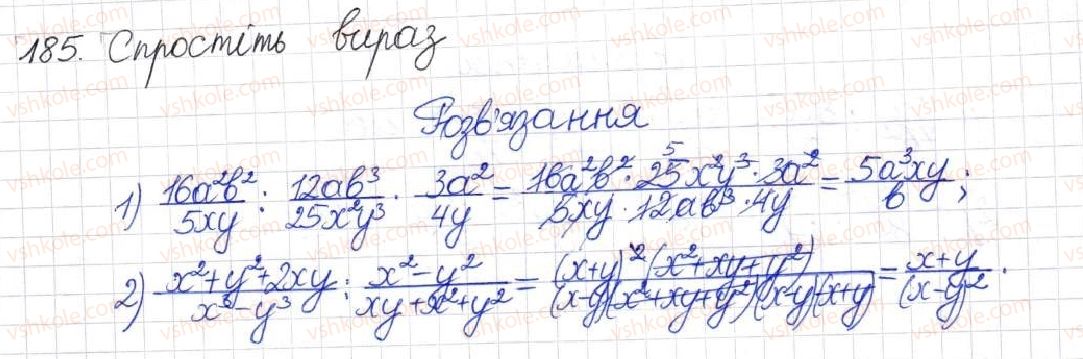 185. Спростіть вираз
Розв'язання
1) 16a²b²/5xy : 12ab³/25x²y³ · 3a²/4y = 16a²b² · 25⁵x²y³ · 3a²/5xy · 12ab³ · 4y = 5a³xy/b ;
2) x²+y²+2xy/x³-y³ : x²-y²/xy+x²+y² = (x+y)²(x²+xy+y²)/(x-y)(x²+xy+y²)(x-y)(x+y) = x+y/(x-y)² .